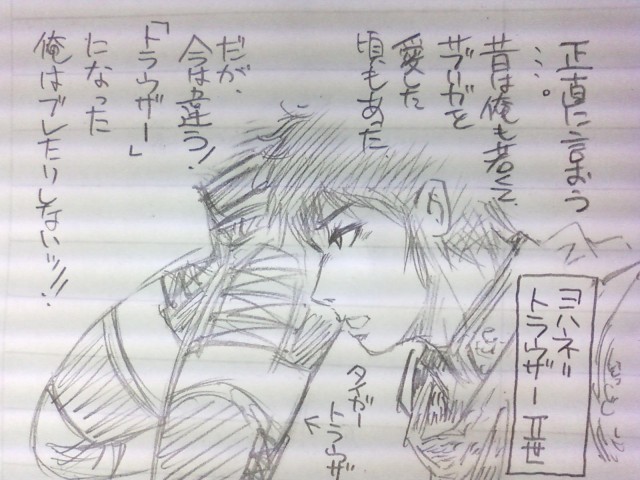 正直に言おう
…。
昔は俺も若く
サブリガを
愛した
頃もあった
だが、
今は違う!
「トラウザー」
になった
俺はブレたりしないッ!!
ヨハネ"
トラウザーⅡ世
タイガー
トラウザ